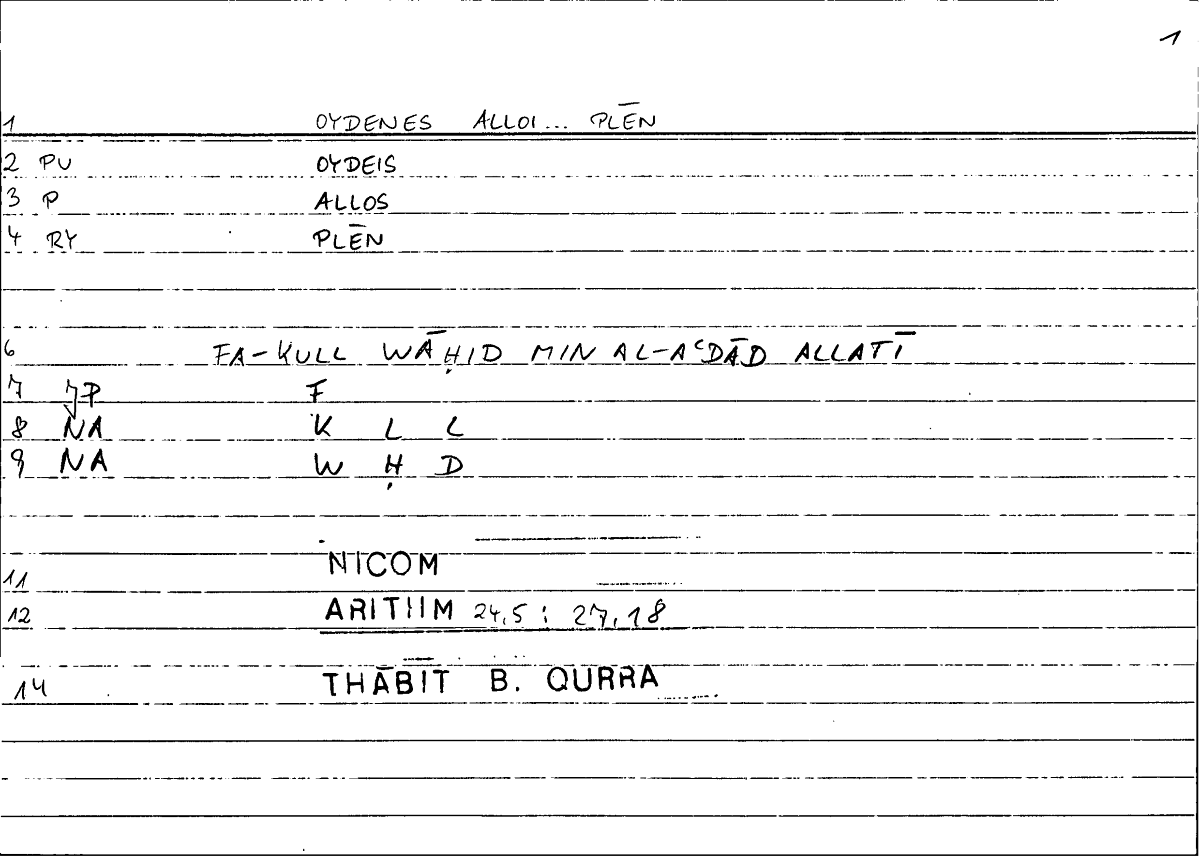 1
1 OYDENES ALLOI... PLĒN
2 PU OYDEIS
3 P ALLOS
4 RY PLĒN
6 FA-KULL WĀḤID MIN AL-AʿDĀD ALLATĪ
7 JP F
8 NA K L L
9 NA W Ḥ D
11 NICOM
12 ARITHM 24,5 : 27,18
14 THĀBIT B. QURRA